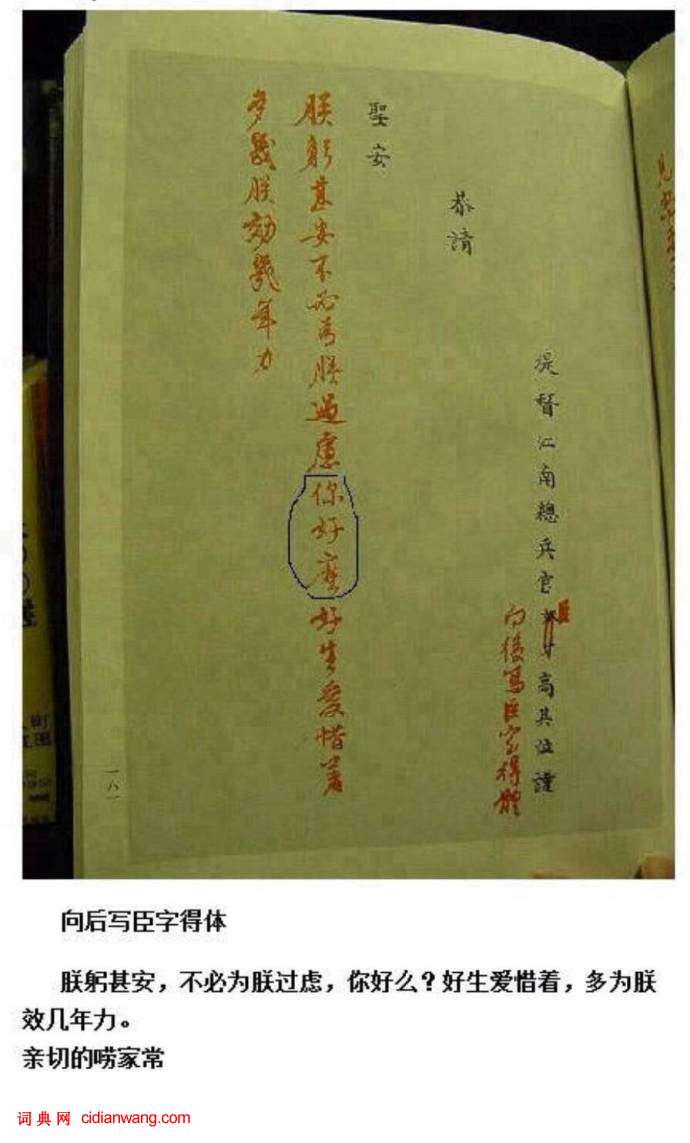 提督江南總兵官奴才高其位謹
臣
向後寫臣字得體
恭請
聖安
朕躬甚安不必為朕過慮你好麼好生愛惜著
多幾朕効幾年力
一八一
向后写臣字得体
朕躬甚安，不必为朕过虑，你好么？好生爱惜着，多为朕
效几年力。
亲切的唠家常
词典网 cidianwang.com